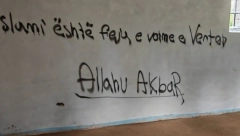 slami është feja e vorme e Vërtet
Allahu AkbaR